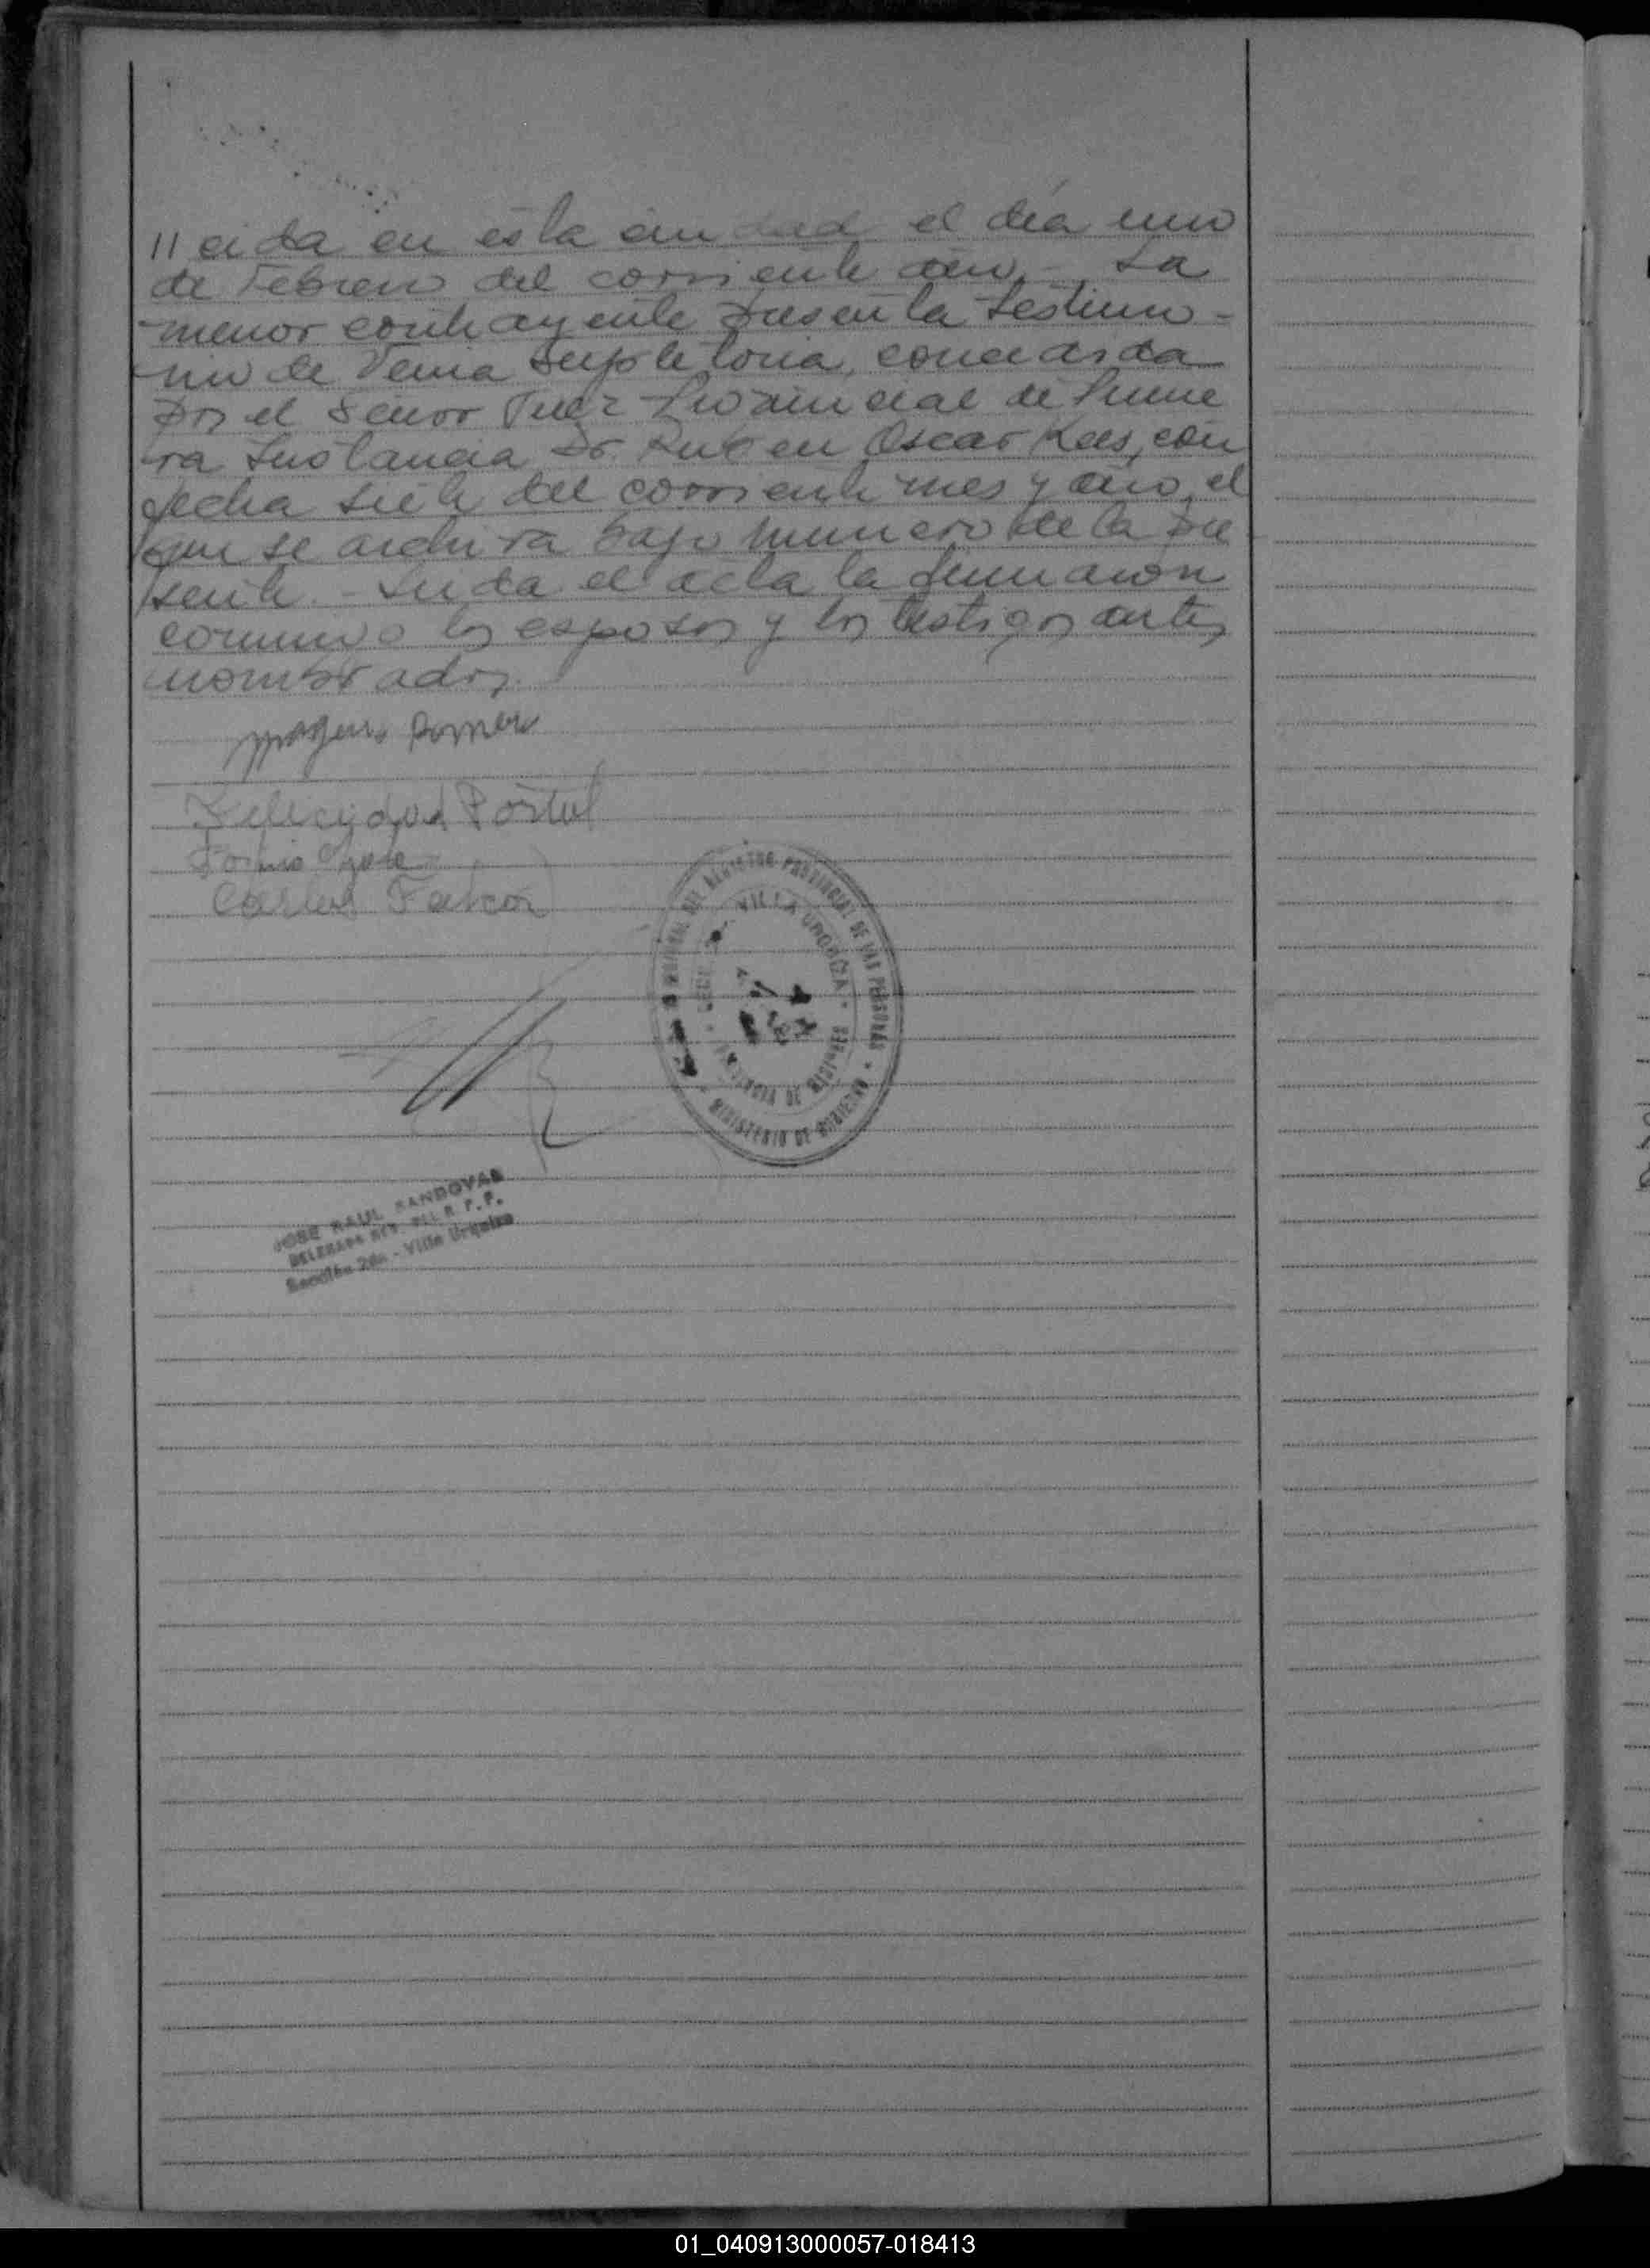 // cida en esta ciudad el día uno
de Febrero del corriente año.- La
menor contrayente presenta testimo-
nio de Venia Supletoria, concedida
por el Señor Juez Provincial de Prime
ra Instancia Dr. Ruben Oscar Kees, con
fecha siete del corriente mes y año, el
que se archiva bajo número de la pre
sente.- Leida el acta la firmaron
conmigo los esposos y los testigos antes
nombrados.
Felicidad Portal
Carlos Falcon
REGISTRO PROVINCIAL DE LAS PERSONAS
MINISTERIO DE GOBIERNO
VILLA URQUIZA
JOSE RAUL SANDOVAL
Sección 2da - Villa Urquiza
01_040913000057-018413